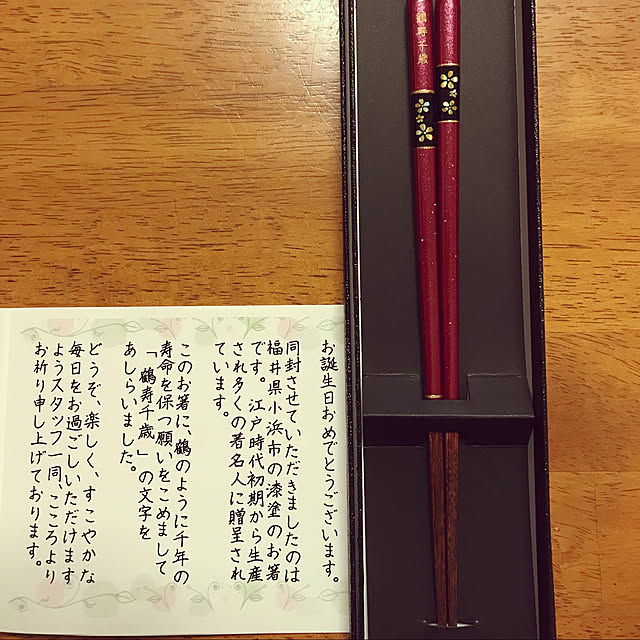 鶴寿千歳
お誕生日おめでとうございます。
同封させていただきましたのは
福井県小浜市の漆塗のお箸
です。江戸時代初期から生産
され多くの著名人に贈呈され
ています。
このお箸に、鶴のように千年の
寿命を保つ願いをこめまして
「鶴寿千歳」の文字を
あしらいました。
どうぞ、楽しく、すこやかな
毎日をお過ごしいただけます
ようスタッフ一同、こころより
お祈り申し上げております。